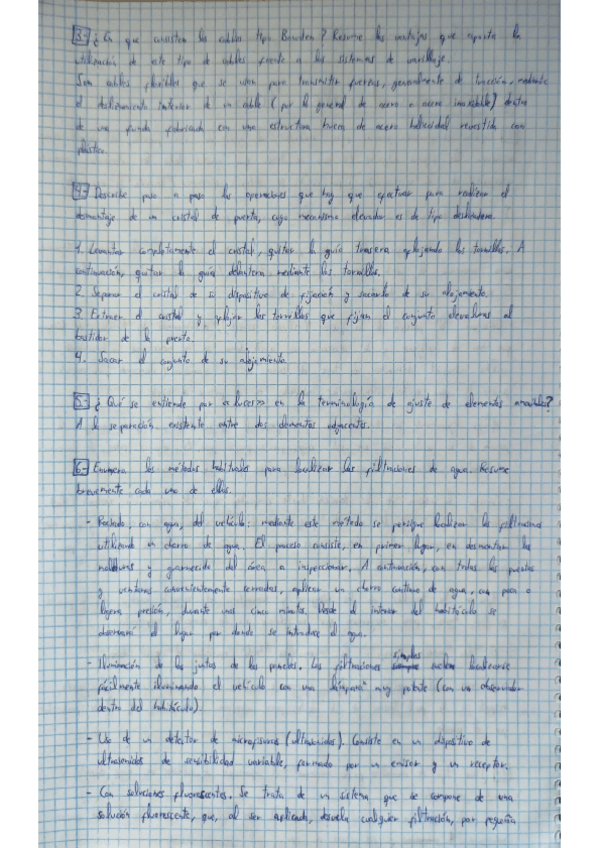 3- ¿En que consisten los cables tipo Bowden? Resume las ventajas que aporta la
utilización de este tipo de cables frente a los sistemas de varillaje.
Son cables flexibles que se usan para transmitir fuerzas, generalmente de tracción, mediante
el deslizamiento interior de un cable (por lo general de acero o acero inoxidable) dentro
de una funda fabricada con una estructura hueca de acero helicoidal revestida con
plástico.
4- Describe paso a paso las operaciones que hay que efectuar para realizar el
desmontaje de un cristal de puerta, cuyo mecanismo elevador es de tipo deslizadera.
1. Levantar completamente el cristal, quitar la guía trasera aflojando los tornillos. A
continuación, quitar la guía delantera mediante los tornillos.
2. Separar el cristal de su dispositivo de fijación y sacarlo de su alojamiento.
3. Extraer el cristal y aflojar los tornillos que fijan el conjunto elevalunas al
bastidor de la puerta.
4. Sacar el conjunto de su alojamiento.
5- ¿Qué se entiende por «luces» en la terminología de ajuste de elementos amovibles?
A la separación existente entre dos elementos adyacentes.
6- Enumera los métodos habituales para localizar las filtraciones de agua. Resume
brevemente cada uno de ellos.
- Rociado, con agua, del vehículo: mediante este método se persigue localizar las filtraciones
utilizando un chorro de agua. El proceso consiste, en primer lugar, en desmontar las
molduras y guarnecido del área a inspeccionar. A continuación, con todas las puertas
y ventanas convenientemente cerradas, aplicar un chorro continuo de agua, con poca o
ligera presión, durante unos cinco minutos. Desde el interior del habitáculo se
observará el lugar por donde se introduce el agua.
- Iluminación de las juntas de los paneles. Las filtraciones simples suelen localizarse
fácilmente iluminando el vehículo con una lámpara muy potente (con un observador
dentro del habitáculo)
- Uso de un detector de microfisuras (ultrasonidos). Consiste en un dispositivo de
ultrasonidos de sensibilidad variable, formado por un emisor y un receptor.
- Con soluciones fluorescentes. Se trata de un sistema que se compone de una
solución fluorescente, que, al ser aplicada, desvela cualquier filtración, por pequeña